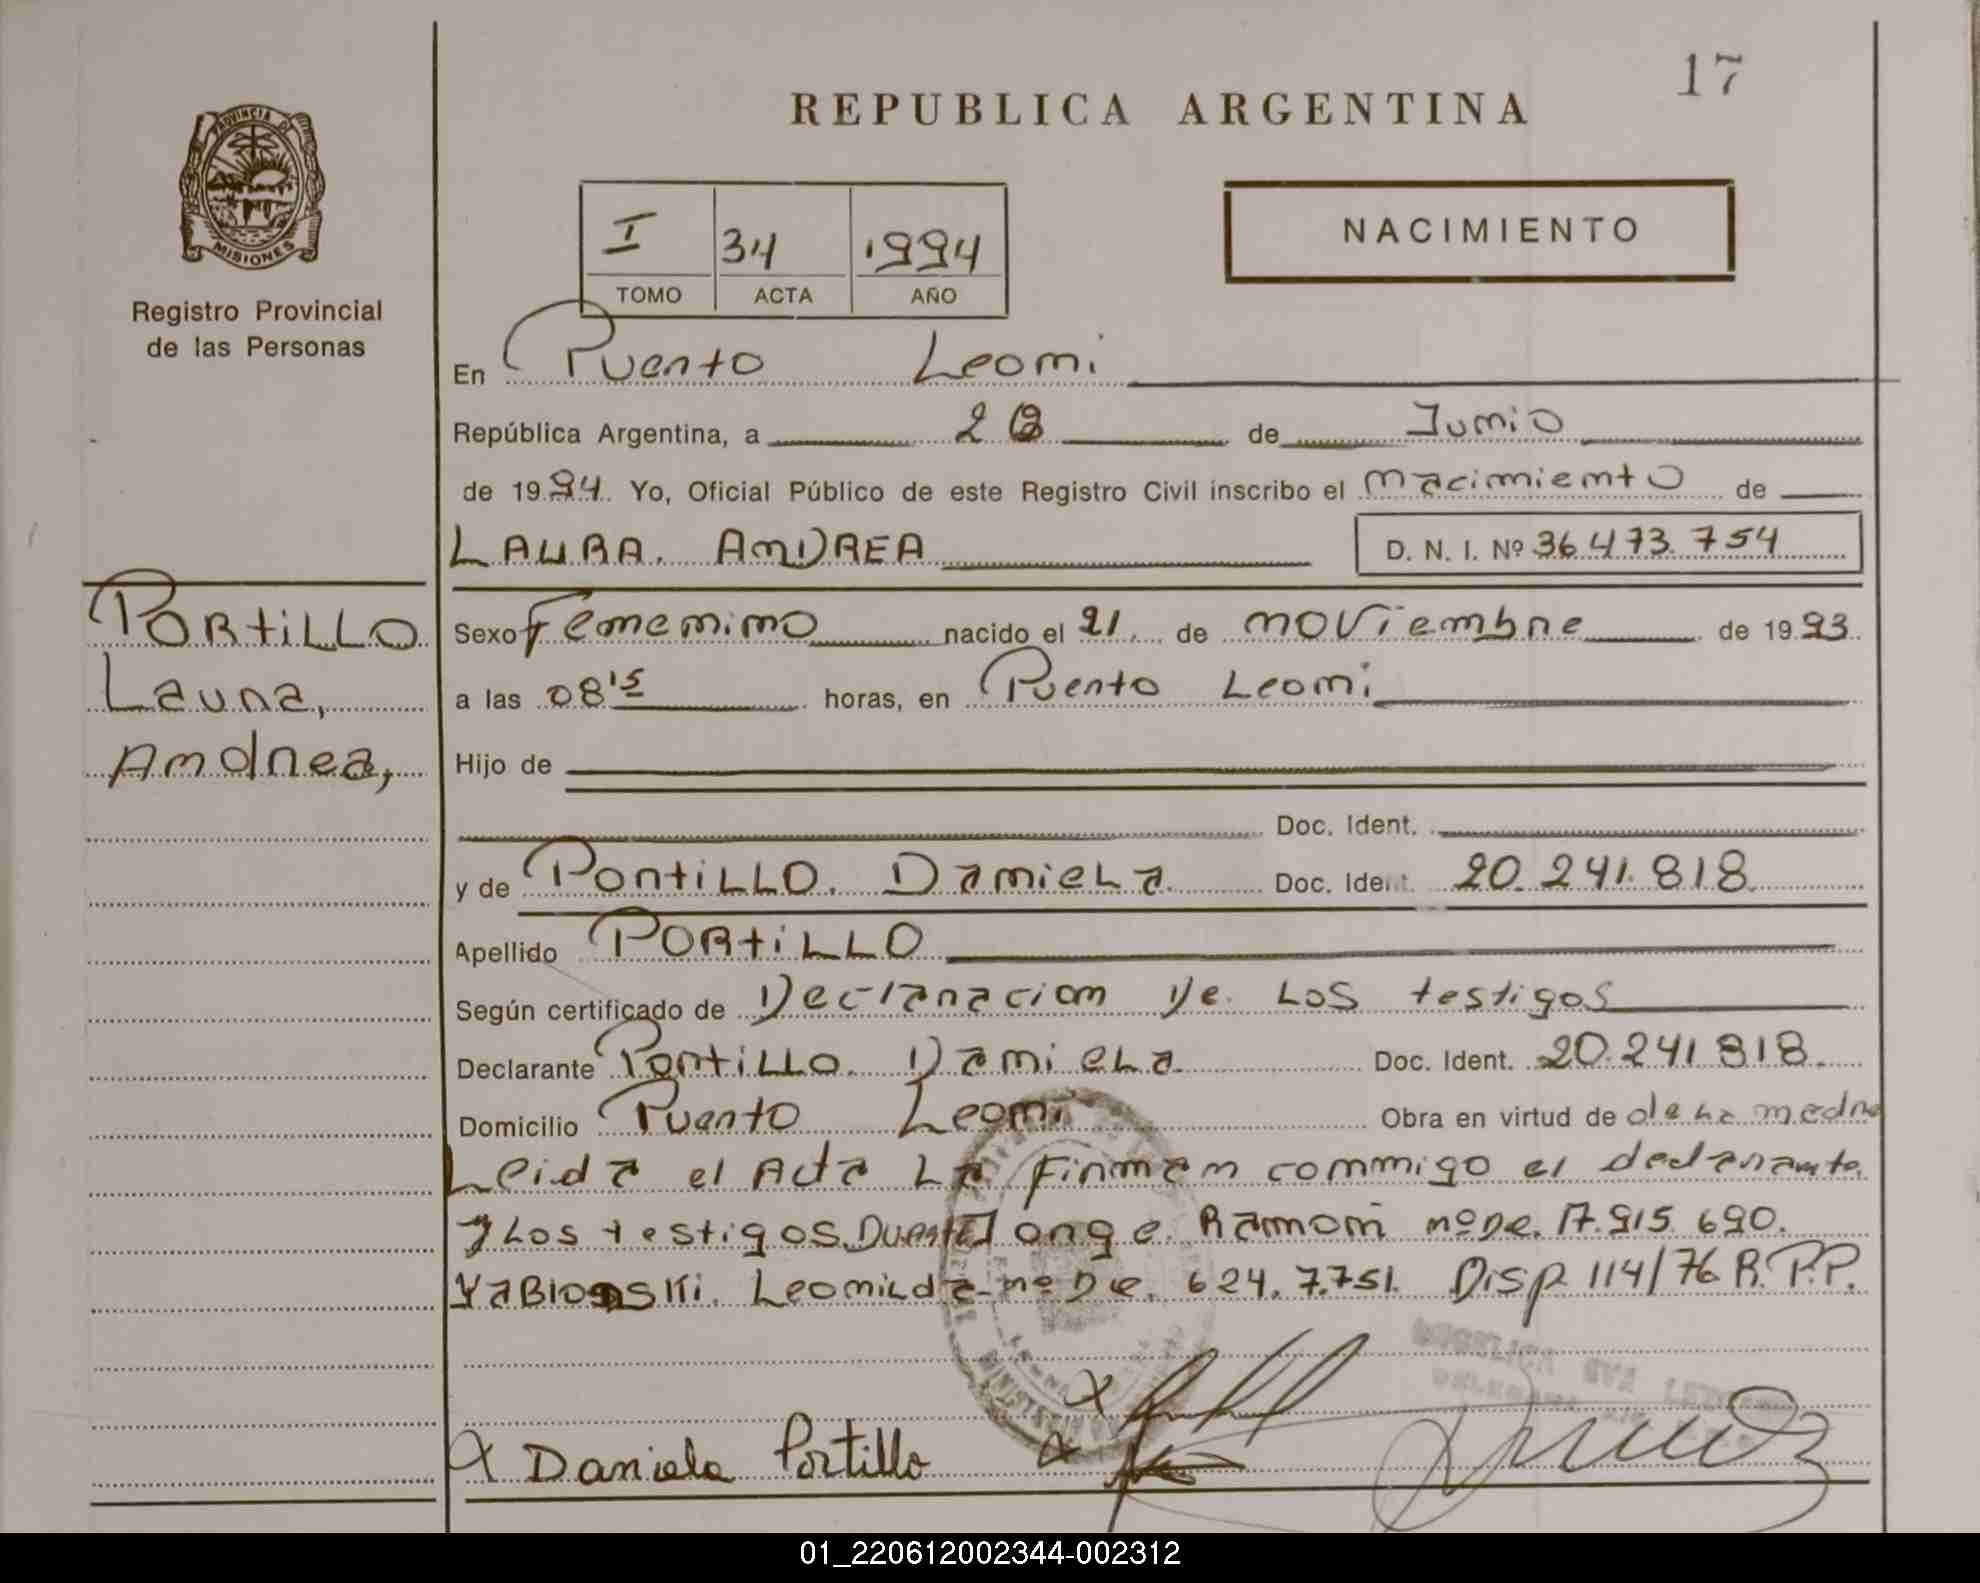 17
REPUBLICA ARGENTINA
PROVINCIA DE
MISIONES
Registro Provincial
de las Personas
I 34 1994
TOMO ACTA AÑO
NACIMIENTO
En Puerto Leoni
República Argentina, a 28 de Junio
de 1994. Yo, Oficial Público de este Registro Civil inscribo el nacimiento de
LAURA. ANDREA D. N. I. Nº 36.473.754
PORtiLLO
Laura,
Andrea,
Sexo Femenino nacido el 21, de noviembre de 1993.
a las 08'15 horas, en Puerto Leoni
Hijo de
Doc. Ident.
y de PortiLLO. DanieLa Doc. Ident. 20.241.818
Apellido PORtiLLO
Según certificado de Declaracion De Los testigos
Declarante PortiLLo. DanieLa Doc. Ident. 20.241.818.
Domicilio Puerto Leoni Obra en virtud de de La madre
Leida el Acta La Firman conmigo el declarante
y Los testigos. Jorge Ramon nº De. 17.915.690.
YaBlonski. LeoniLda nº De. 624.7.751. Disp. 114/76 R.P.P.
X
X Daniela Portillo X
01_220612002344-002312